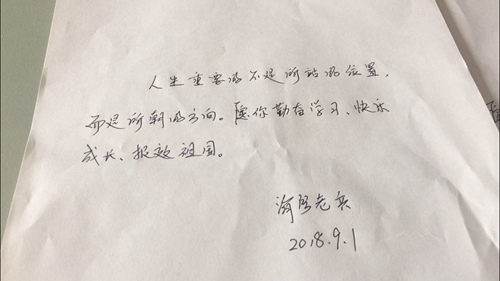 人生重要的不是所站的位置,
而是所朝的方向。愿你勤奋学习、快乐
成长、报效祖国。
老兵
2018.9.1